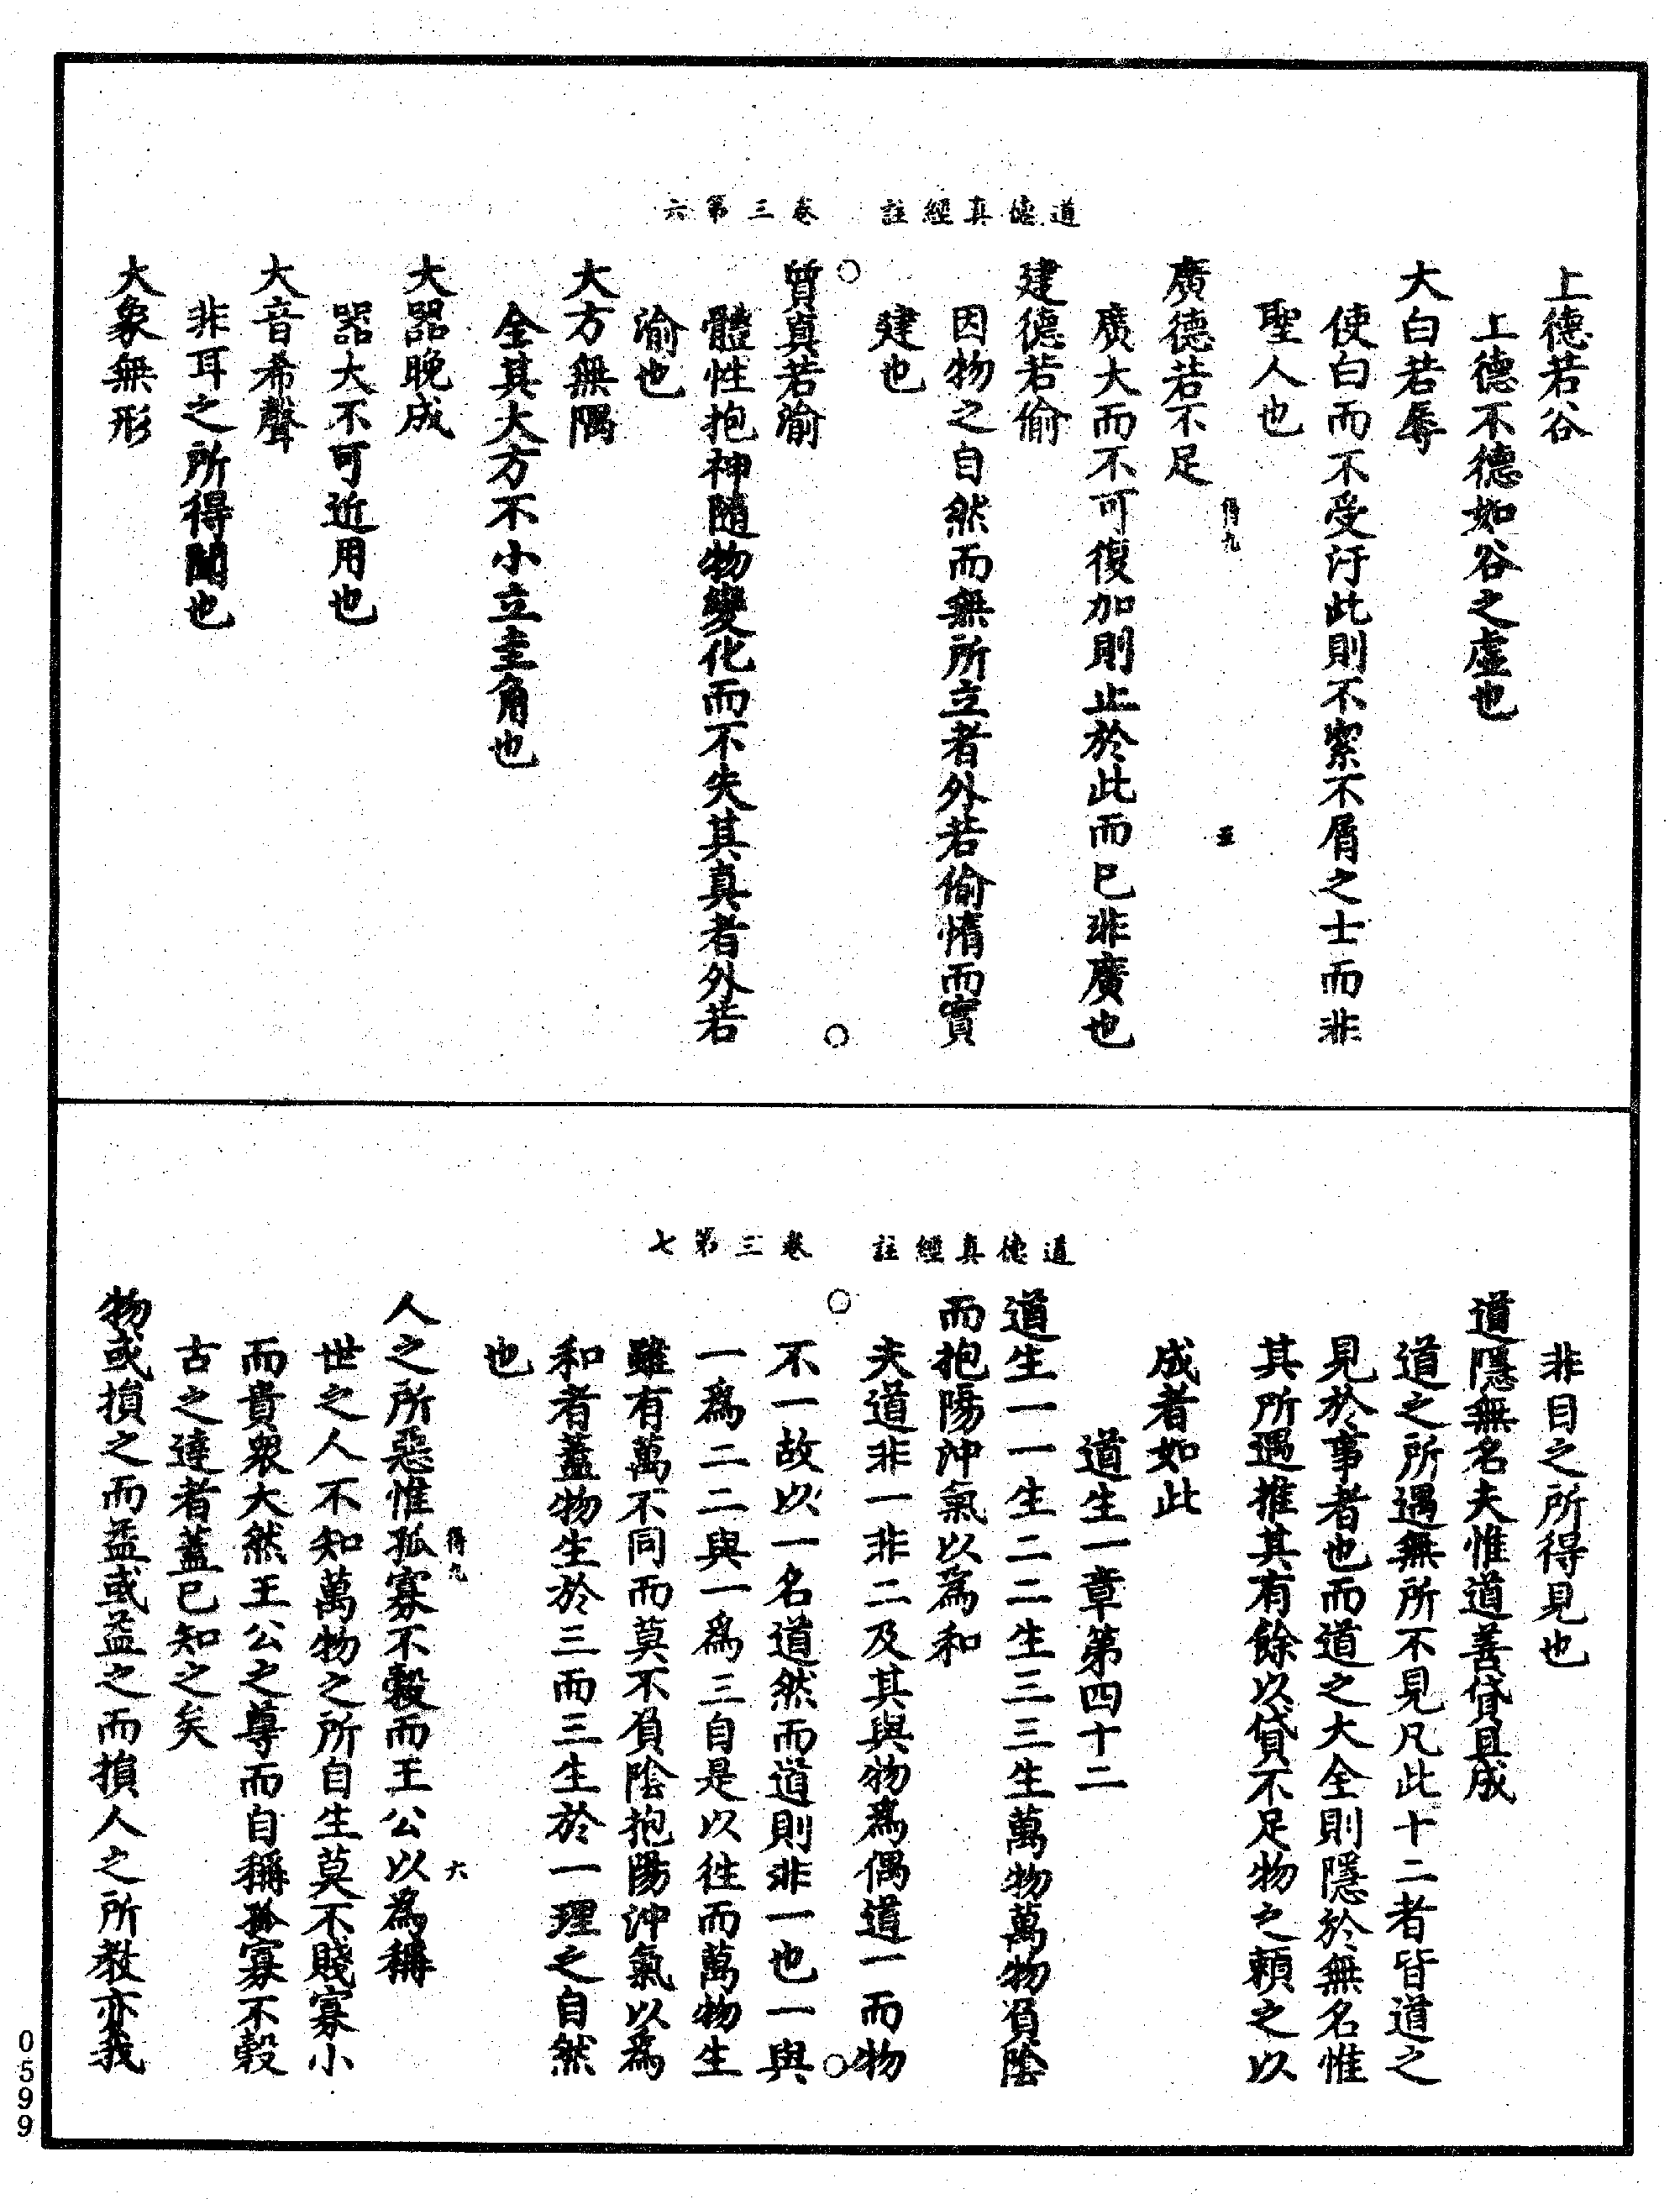 道德真經註　卷三第六
上德若谷
上德不德如谷之虛也
大白若辱
使白而不受汙此則不絜不屑之士而非
聖人也
得九　五
廣德若不足
廣大而不可復加則止於此而已非廣也
建德若偷
因物之自然而無所立者外若偷惰而實
建也
質真若渝
體性抱神隨物變化而不失其真者外若
渝也
大方無隅
全其大方不小立圭角也
大器晚成
器大不可近用也
大音希聲
非耳之所得聞也
大象無形
道德真經註　卷三第七
非目之所得見也
道隱無名夫惟道善貸且成
道之所遇無所不見凡此十二者皆道之
見於事者也而道之大全則隱於無名惟
其所遇推其有餘以貸不足物之賴之以
成者如此
道生一章第四十二
道生一一生二二生三三生萬物萬物負陰
而抱陽沖氣以為和
夫道非一非二及其與物為偶道一而物
不一故以一名道然而道則非一也一與
一為二二與一為三自是以往而萬物生
雖有萬不同而莫不負陰抱陽沖氣以為
和者蓋物生於三而三生於一理之自然
也
得九　六
人之所惡惟孤寡不穀而王公以為稱
世之人不知萬物之所自生莫不賤寡小
而貴衆大然王公之尊而自稱孤寡不穀
古之達者蓋已知之矣
物或損之而益或益之而損人之所教亦我
0599